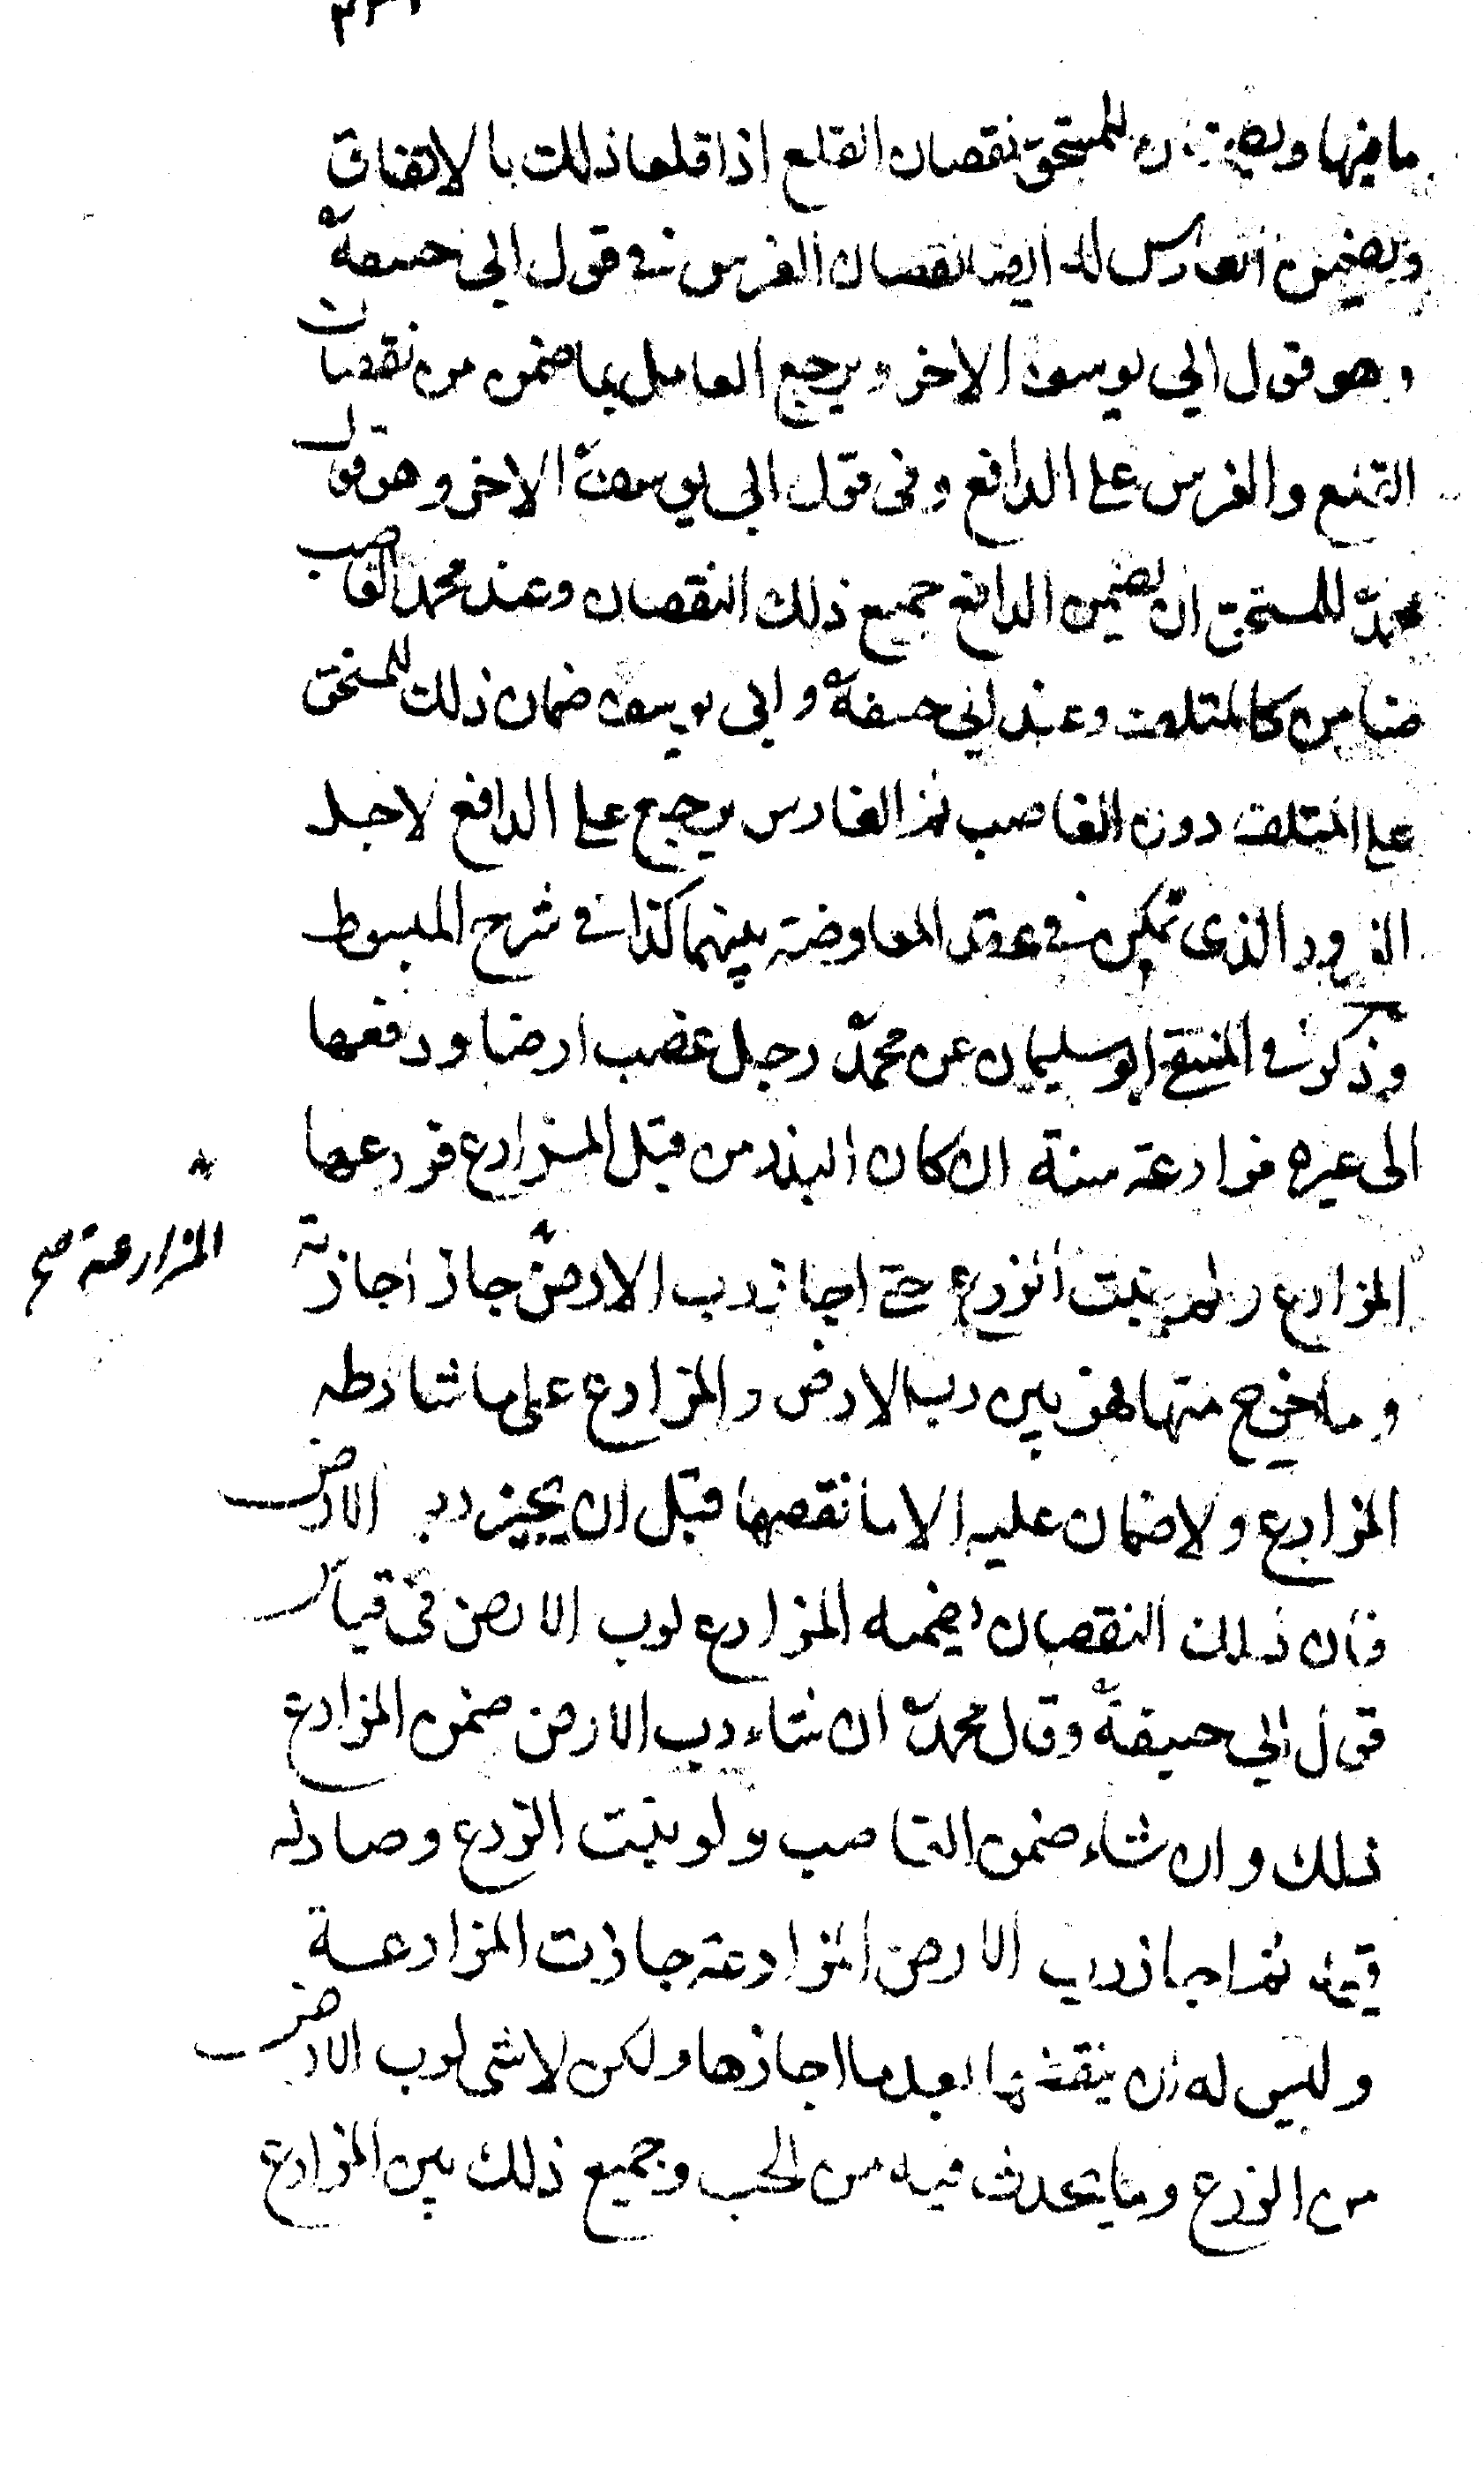 ما فيها ويضمنان للمستحق نقصان القلع اذا قلعا ذلك بالاتفاق
ويضمن الغارس له ايضا نقصان الغرس في قول ابي حنيفة
وهو قول ابي يوسف الاخر ويرجع العامل بما ضمن من نقصان
القلع والغرس على الدافع وفي قول ابي يوسف الاخر وهو قول
محمد للمستحق ان يضمن الدافع جميع ذلك النقصان وعند محمد الغاصب
ضامن كالمتلف وعند ابي حنيفة وابي يوسف ضمان ذلك للمستحق
على المتلف دون الغاصب ثم الغارس يرجع على الدافع لاجل
الغرور الذي تمكن في عقد المعاوضة بينهما كذا في شرح المبسوط
وذكر في المنتقى ابو سليمان عن محمد رجل غصب ارضا ودفعها
الى غيره مزارعة سنة ان كان البذر من قبل المزارع فزرعها
المزارع ولم ينبت الزرع حتى اجاز رب الارض جاز اجازته
المزارعة صح
وما خرج منها فهو بين رب الارض والمزارع على ما شارطه
المزارع ولا ضمان عليه الا ما نقصها قبل ان يجيز رب الارض
فان ذلك النقصان يضمنه المزارع لرب الارض في قياس
قول ابي حنيفة وقال محمد ان شاء رب الارض ضمن المزارع
ذلك وان شاء ضمن الغاصب ولو ينبت الزرع وصار له
قيمة ثم اجاز رب الارض المزارعة جازت المزارعة
وليس له ان ينقضها بعد ما اجازها ولكن لا شي لرب الارض
من الزرع وما يتحدث فيه من الحب وجميع ذلك بين المزارع